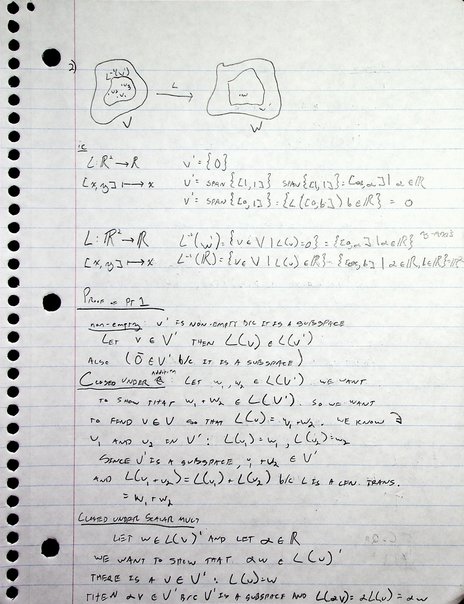 2)
L⁻¹(V')
L
V
W
ie
L: ℝ² → ℝ V' = {0}
[x,y] ↦ x V' = SPAN {[1,1]} SPAN {[1,1]} = [α,α] | α∈ℝ
V' = SPAN {[0,1]} = {L([0,b]) b∈ℝ} = 0
L: ℝ² → ℝ = {v∈V | L(v)=0} = {[0,α] | α∈ℝ} y-AXIS
[x,y] ↦ x L⁻¹(ℝ) = {v∈V | L(v)∈ℝ}
PROOF OF PT 1
NON-EMPTY: V' IS NON-EMPTY B/C IT IS A SUBSPACE
LET V ∈ V' THEN L(V) ∈ L(V')
ALSO (0 ∈ V' b/c IT IS A SUBSPACE)
CLOSED UNDER ADDITION: LET W₁, W₂ ∈ L(V'). WE WANT
TO SHOW THAT W₁ + W₂ ∈ L(V'). SO WE WANT
TO FIND V∈V SO THAT L(V) = W₁ + W₂. WE KNOW ∃
V₁ AND V₂ IN V' : L(V₁) = W₁, L(V₂) = W₂
SINCE V' IS A SUBSPACE, V₁ + V₂ ∈ V'
AND L(V₁+V₂) = L(V₁) + L(V₂) b/c L IS A LIN. TRANS.
= W₁ + W₂
CLOSED UNDER SCALAR MULT
LET W∈L(V)' AND LET α∈ℝ
WE WANT TO SHOW THAT αW ∈ L(V)'
THERE IS A V∈V' : L(V)=W
THEN αV ∈ V' B/C V' IS A SUBSPACE AND L(αV) = αL(V) = αW